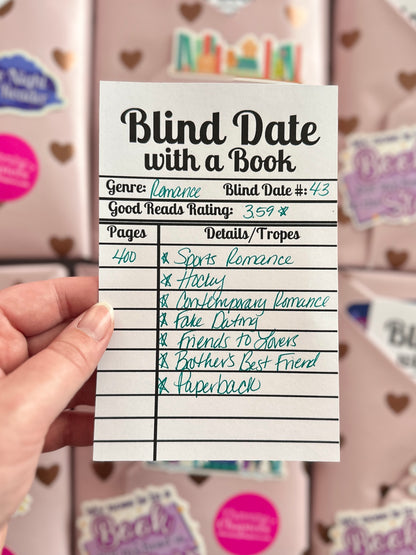 Blind Date
with a Book
Genre: Romance Blind Date #: 43
Good Reads Rating: 3.59 ☆
Pages Details/Tropes
400 ☆ Sports Romance
☆ Hocky
☆ Contemporary Romance
☆ Fake Dating
☆ Friends to Lovers
☆ Brother's Best Friend
☆ Paperback
Night
Reader
Book
Book